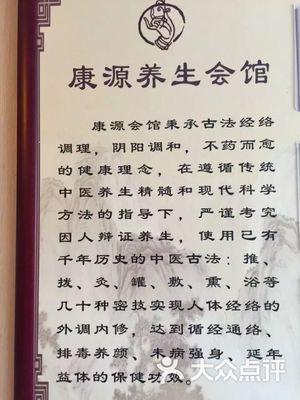 康源养生会馆
康源会馆秉承古法经络
调理，阴阳调和，不药而愈
的健康理念，在遵循传统
中医养生精髓和现代科学
方法的指导下，严谨考究
因人辩证养生，使用已有
千年历史的中医古法：推、
拨、灸、罐、敷、熏、浴等
几十种密技实现人体经络的
外调内修，达到循经通络、
排毒养颜、未病强身、延年
益体的保健功效。
大众点评